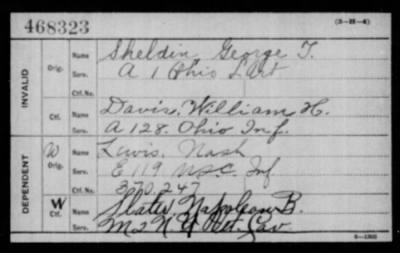 468323
(3-H-4)
INVALID
Orig.
Name Sheldin, George T.
Serv. A 1 Ohio L Art
Ctf. No.
Ctf.
Name Davis, William H.
Serv. A 128. Ohio Inf.
DEPENDENT
W Orig.
Name Lewis, Nash
Serv. E 119 U.S.C. Inf
Ctf. No. 370,247
W Ctf.
Name Slater Napoleon B.
Serv. M 2 N.Y. Vet. Cav